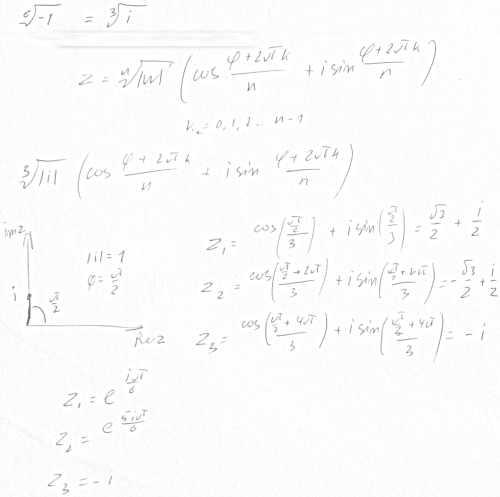 ⁶√-1 = ³√i
z = ⁿ√|w| (cos (φ+2πk)/n + i sin (φ+2πk)/n)
k = 0, 1, 2 ... n-1
³√|i| (cos (φ+2πk)/n + i sin (φ+2πk)/n)
Im z
i
π/2
Re z
|i| = 1
φ = π/2
z₁ = cos(π/2)/3 + i sin(π/2)/3 = √3/2 + i/2
z₂ = cos(π/2+2π)/3 + i sin(π/2+2π)/3 = -√3/2 + i/2
z₃ = cos(π/2+4π)/3 + i sin(π/2+4π)/3 = -i
z₁ = e^(iπ/6)
z₂ = e^(5iπ/6)
z₃ = -i